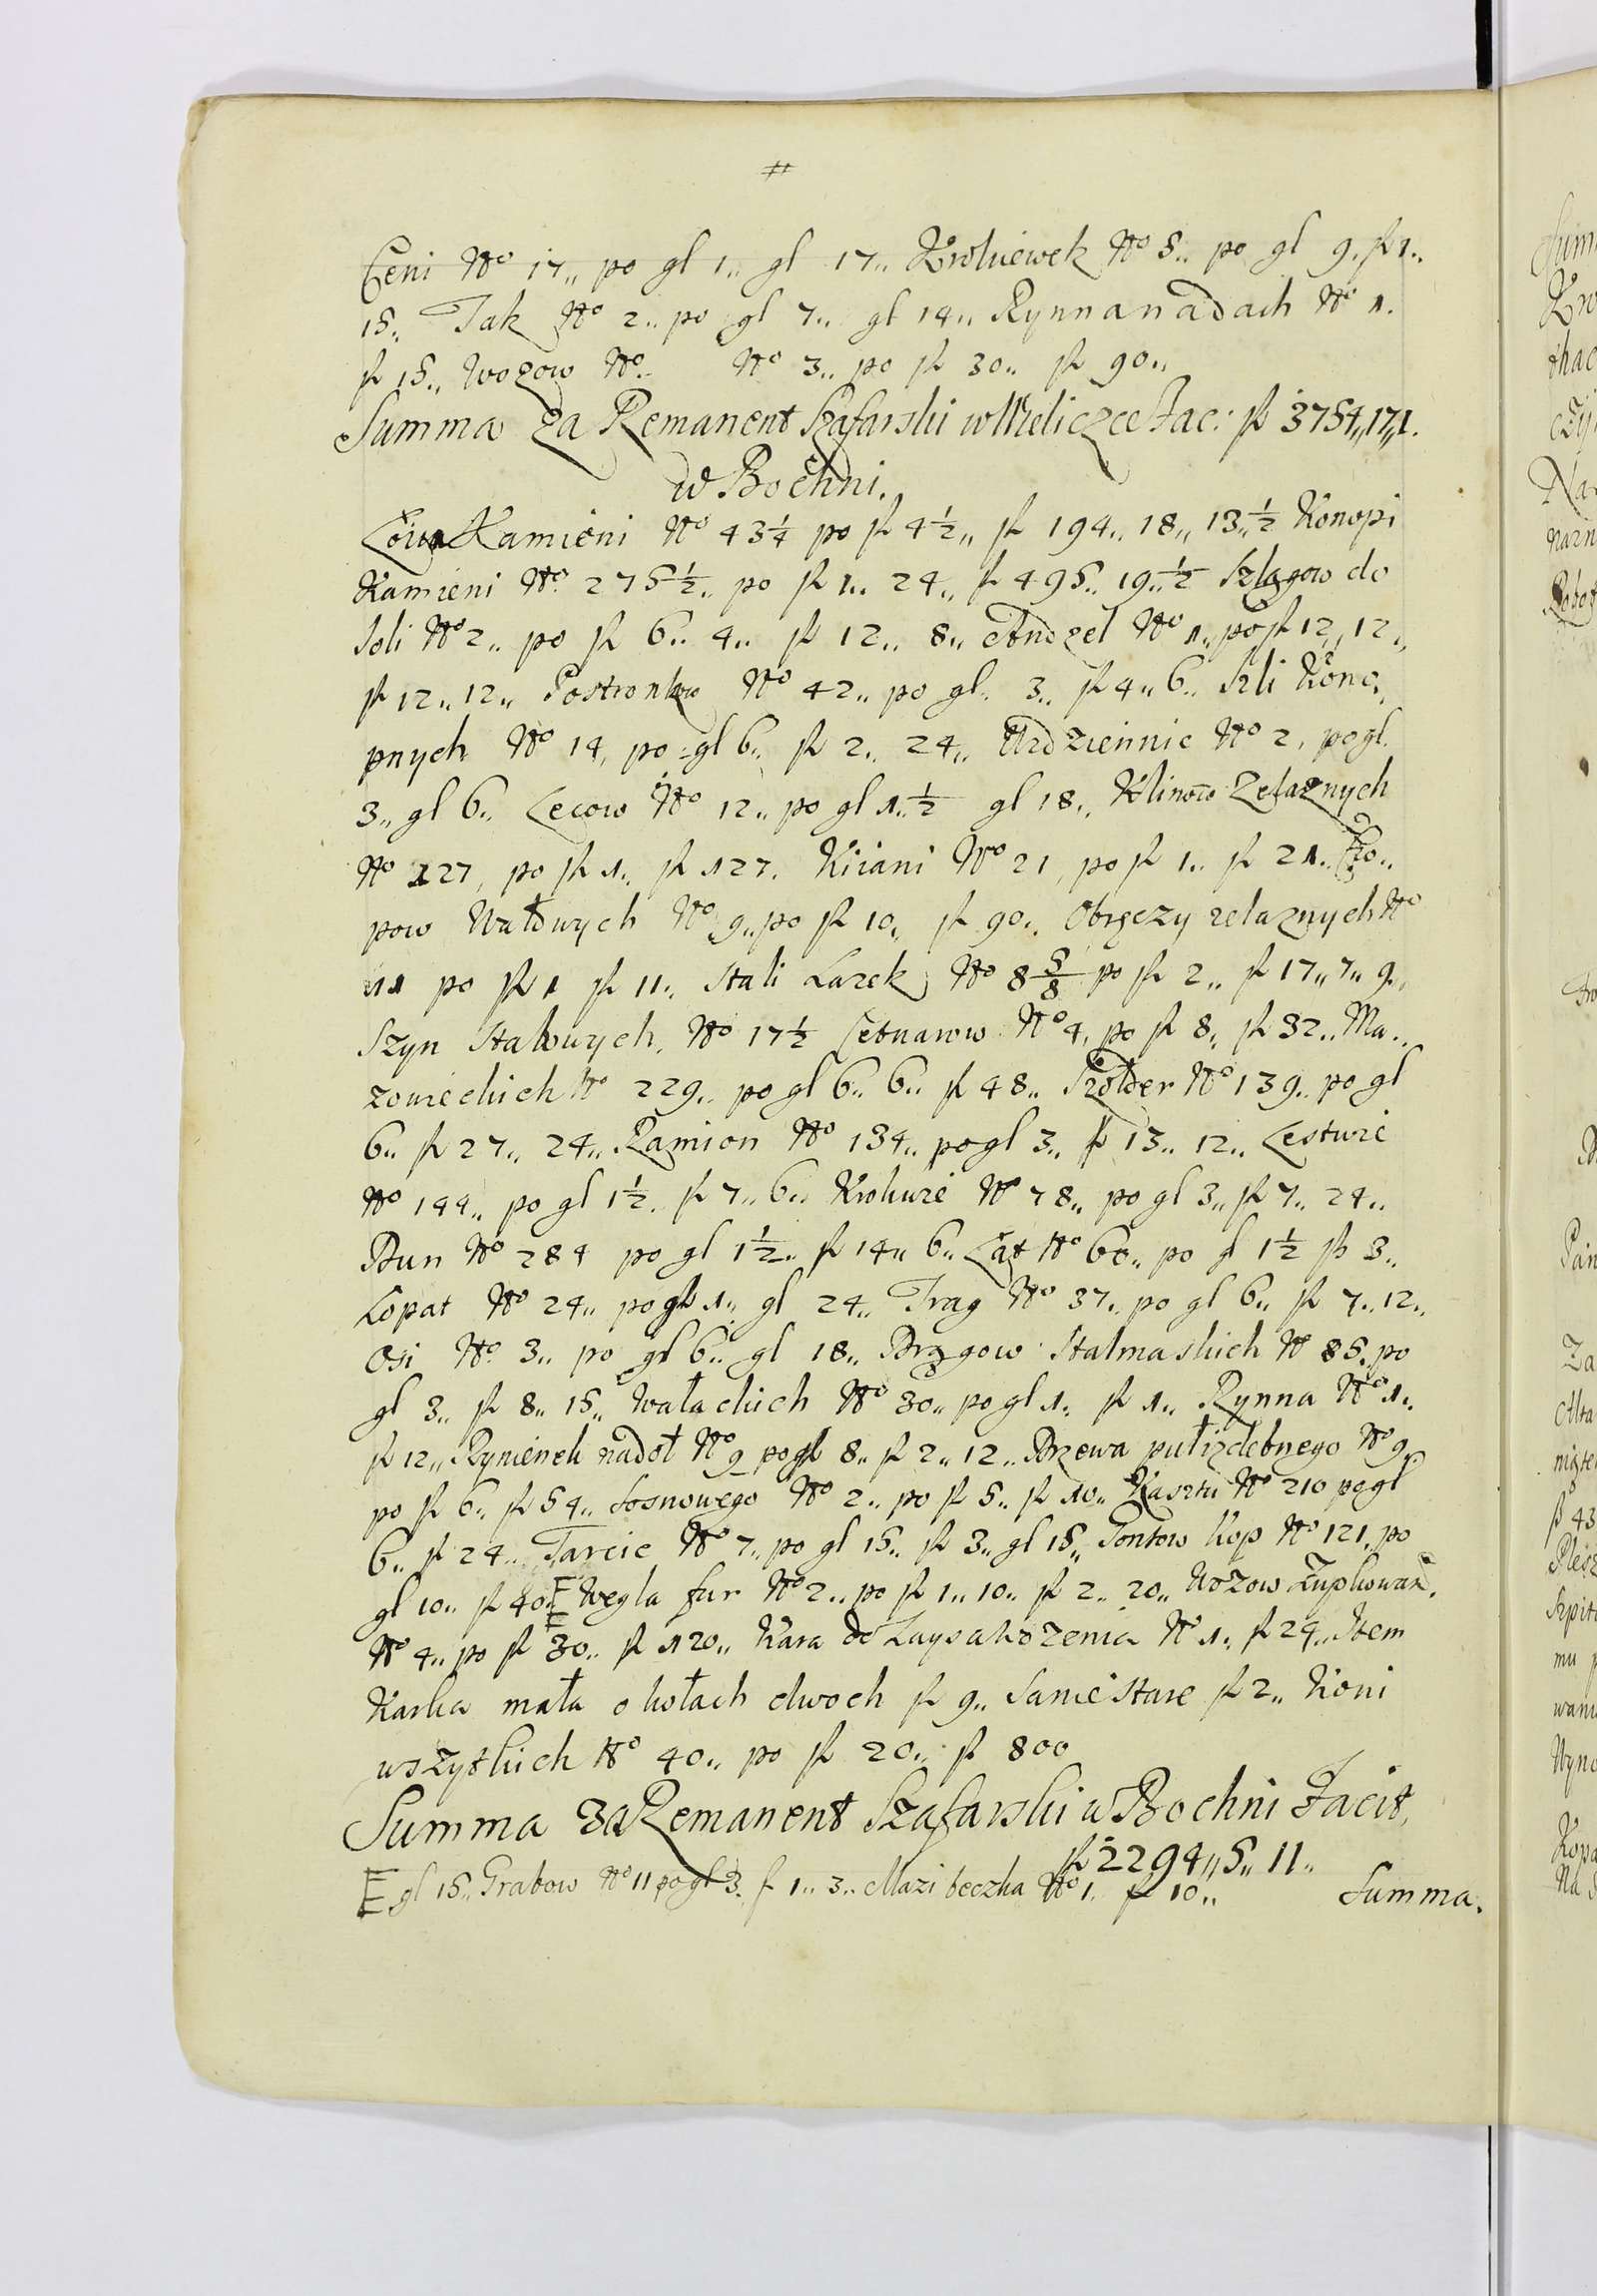 #
Ceni No 17,, po gl 1,, gl 17,, Kroluiewek No 5.. po gl 9. fl 1..
15. Tak No 2.. po gl 7.. gl 14.. Rynna na dach No 1.
fl 15.. Wozow No. No 3.. po fl 30.. fl 90..
Summa za Remanent Szafarski w Wieliczce Fac: fl 3754,,17,,1.
w Bochni.
Łoiu Kamieni No 43¼ po fl 4½,, fl 194.. 18,, 13,,½ Konopi
Kamieni No. 275½.. po fl 1.. 24,, fl 495.. 19..½ Szlągow do
soli No 2.. po fl 6.. 4.. fl 12.. 8.. Andzel No 1., po fl 12,, 12,,
fl 12,, 12,, Postronkow No 42.. po gl. 3.. fl 4.. 6.. Szli Kono,
pnych No 14, po gl 6.. fl 2.. 24,, Uzdziennic No 2, po gl.
3.. gl 6.. Lecow No 12.. po gl 1..½ gl 18.. Klinow Zelaznych
No 127, po fl 1.. fl 127. Kiiani No 21, po fl 1.. fl 21..
pow Wałowych No 9.. po fl 10,, fl 90.. Obręczy zelaznych No
11 po fl 1 fl 11.. Stali Lazek No 8 5/8 po fl 2.. fl 17.. 7.. 9.,
Szyn Stalowych. No 17½ Cetnarow No 4, po fl 8.. fl 32.. Ma..
zowieckich No 229.. po gl 6.. 6.. fl 48.. Szolder No 139.. po gl
6.. fl 27.. 24.. Ramion No 134.. po gl 3.. fl 13.. 12.. Lestwic
No 144.. po gl 1½. fl 7.. 6.. Krokwie No 78.. po gl 3.. fl 7.. 24..
Dun No 284 po gl 1½.. fl 14.. 6.. Łat No 60.. po gl 1½ fl 3..
Łopat No 24.. po gl 1.. gl 24.. Trag No 37.. po gl 6.. fl 7.. 12..
Osi No. 3.. po gl 6.. gl 18.. Drągow Stalmaskich No 85. po
gl 3.. fl 8.. 15.. Walackich No 30.. po gl 1.. fl 1.. Rynna No 1..
fl 12,, Rynienek na doł No 9 po gl 8.. fl 2.. 12.. Drzewa pułizdebnego No 9
po fl 6.. fl 54.. Sosnowego No 2.. po fl 5.. fl 10.. Kasztu No 210 po gl
6.. fl 24.. Tarcic No 7.. po gl 15.. fl 3.. gl 15.. Gontow Kop No 121. po
gl 10.. fl 40.. Wegla fur No 2.. po fl 1.. 10.. fl 2.. 20.. Wozow Zupkowan.
No 4.. po fl 30.. fl 120.. Kara do Zaysakozenia No 1.. fl 24.. Item
Karka mała o kołach dwoch fl 9.. Sanie stare fl 2.. Koni
wszytkich No 40.. po fl 20.. fl 800
Summa za Remanent Szafarski w Bochni Facit,
fl 2294,,5.. 11..
gl 15.. Grabow No 11 po gl 3. f 1.. 3.. Mazi beczka No 1. fl 10.. Summa.